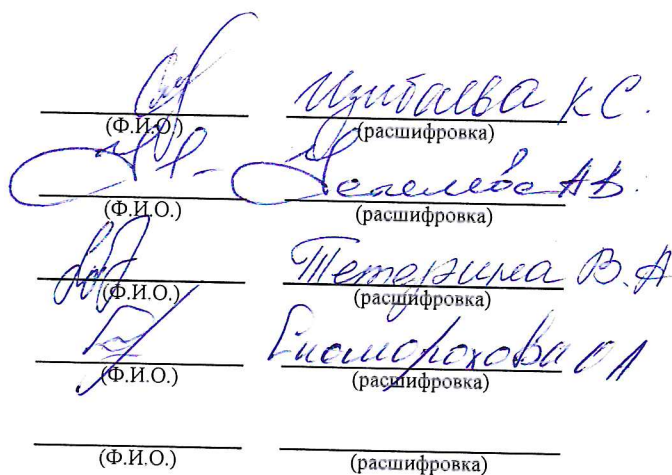 Изибаева К С.
(Ф.И.О.) (расшифровка)
А.В.
(Ф.И.О.) (расшифровка)
Тетерина В. А
(Ф.И.О.) (расшифровка)
Скоморохова О Л
(Ф.И.О.) (расшифровка)
(Ф.И.О.) (расшифровка)